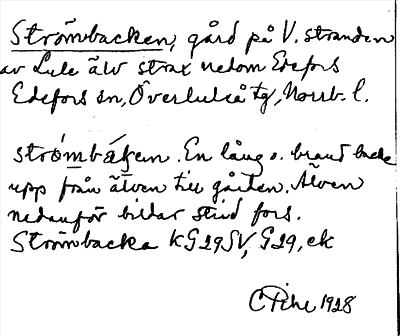 Strömbacken, gård på V. stranden
av Lule älv strax nedom Edefors
Edefors sn, Överluleå tg, Norrb. l.
strömbáken. En lång o. brant backe
upp från älven till gården. Älven
nedanför bildar strid fors.
Strömbacka KG29SV, G29, ek
C Pihl 1928